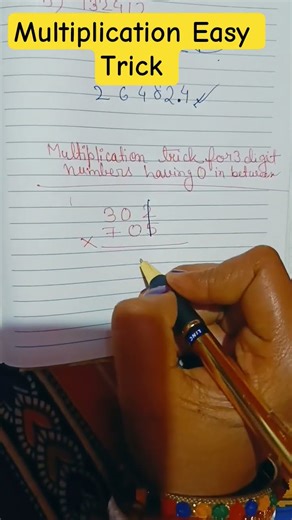 Multiplication Easy
Trick
2 6 4 8 2.4
Multiplication trick for 3 digit
numbers having 0 in between
3 0 2
× 7 0 5